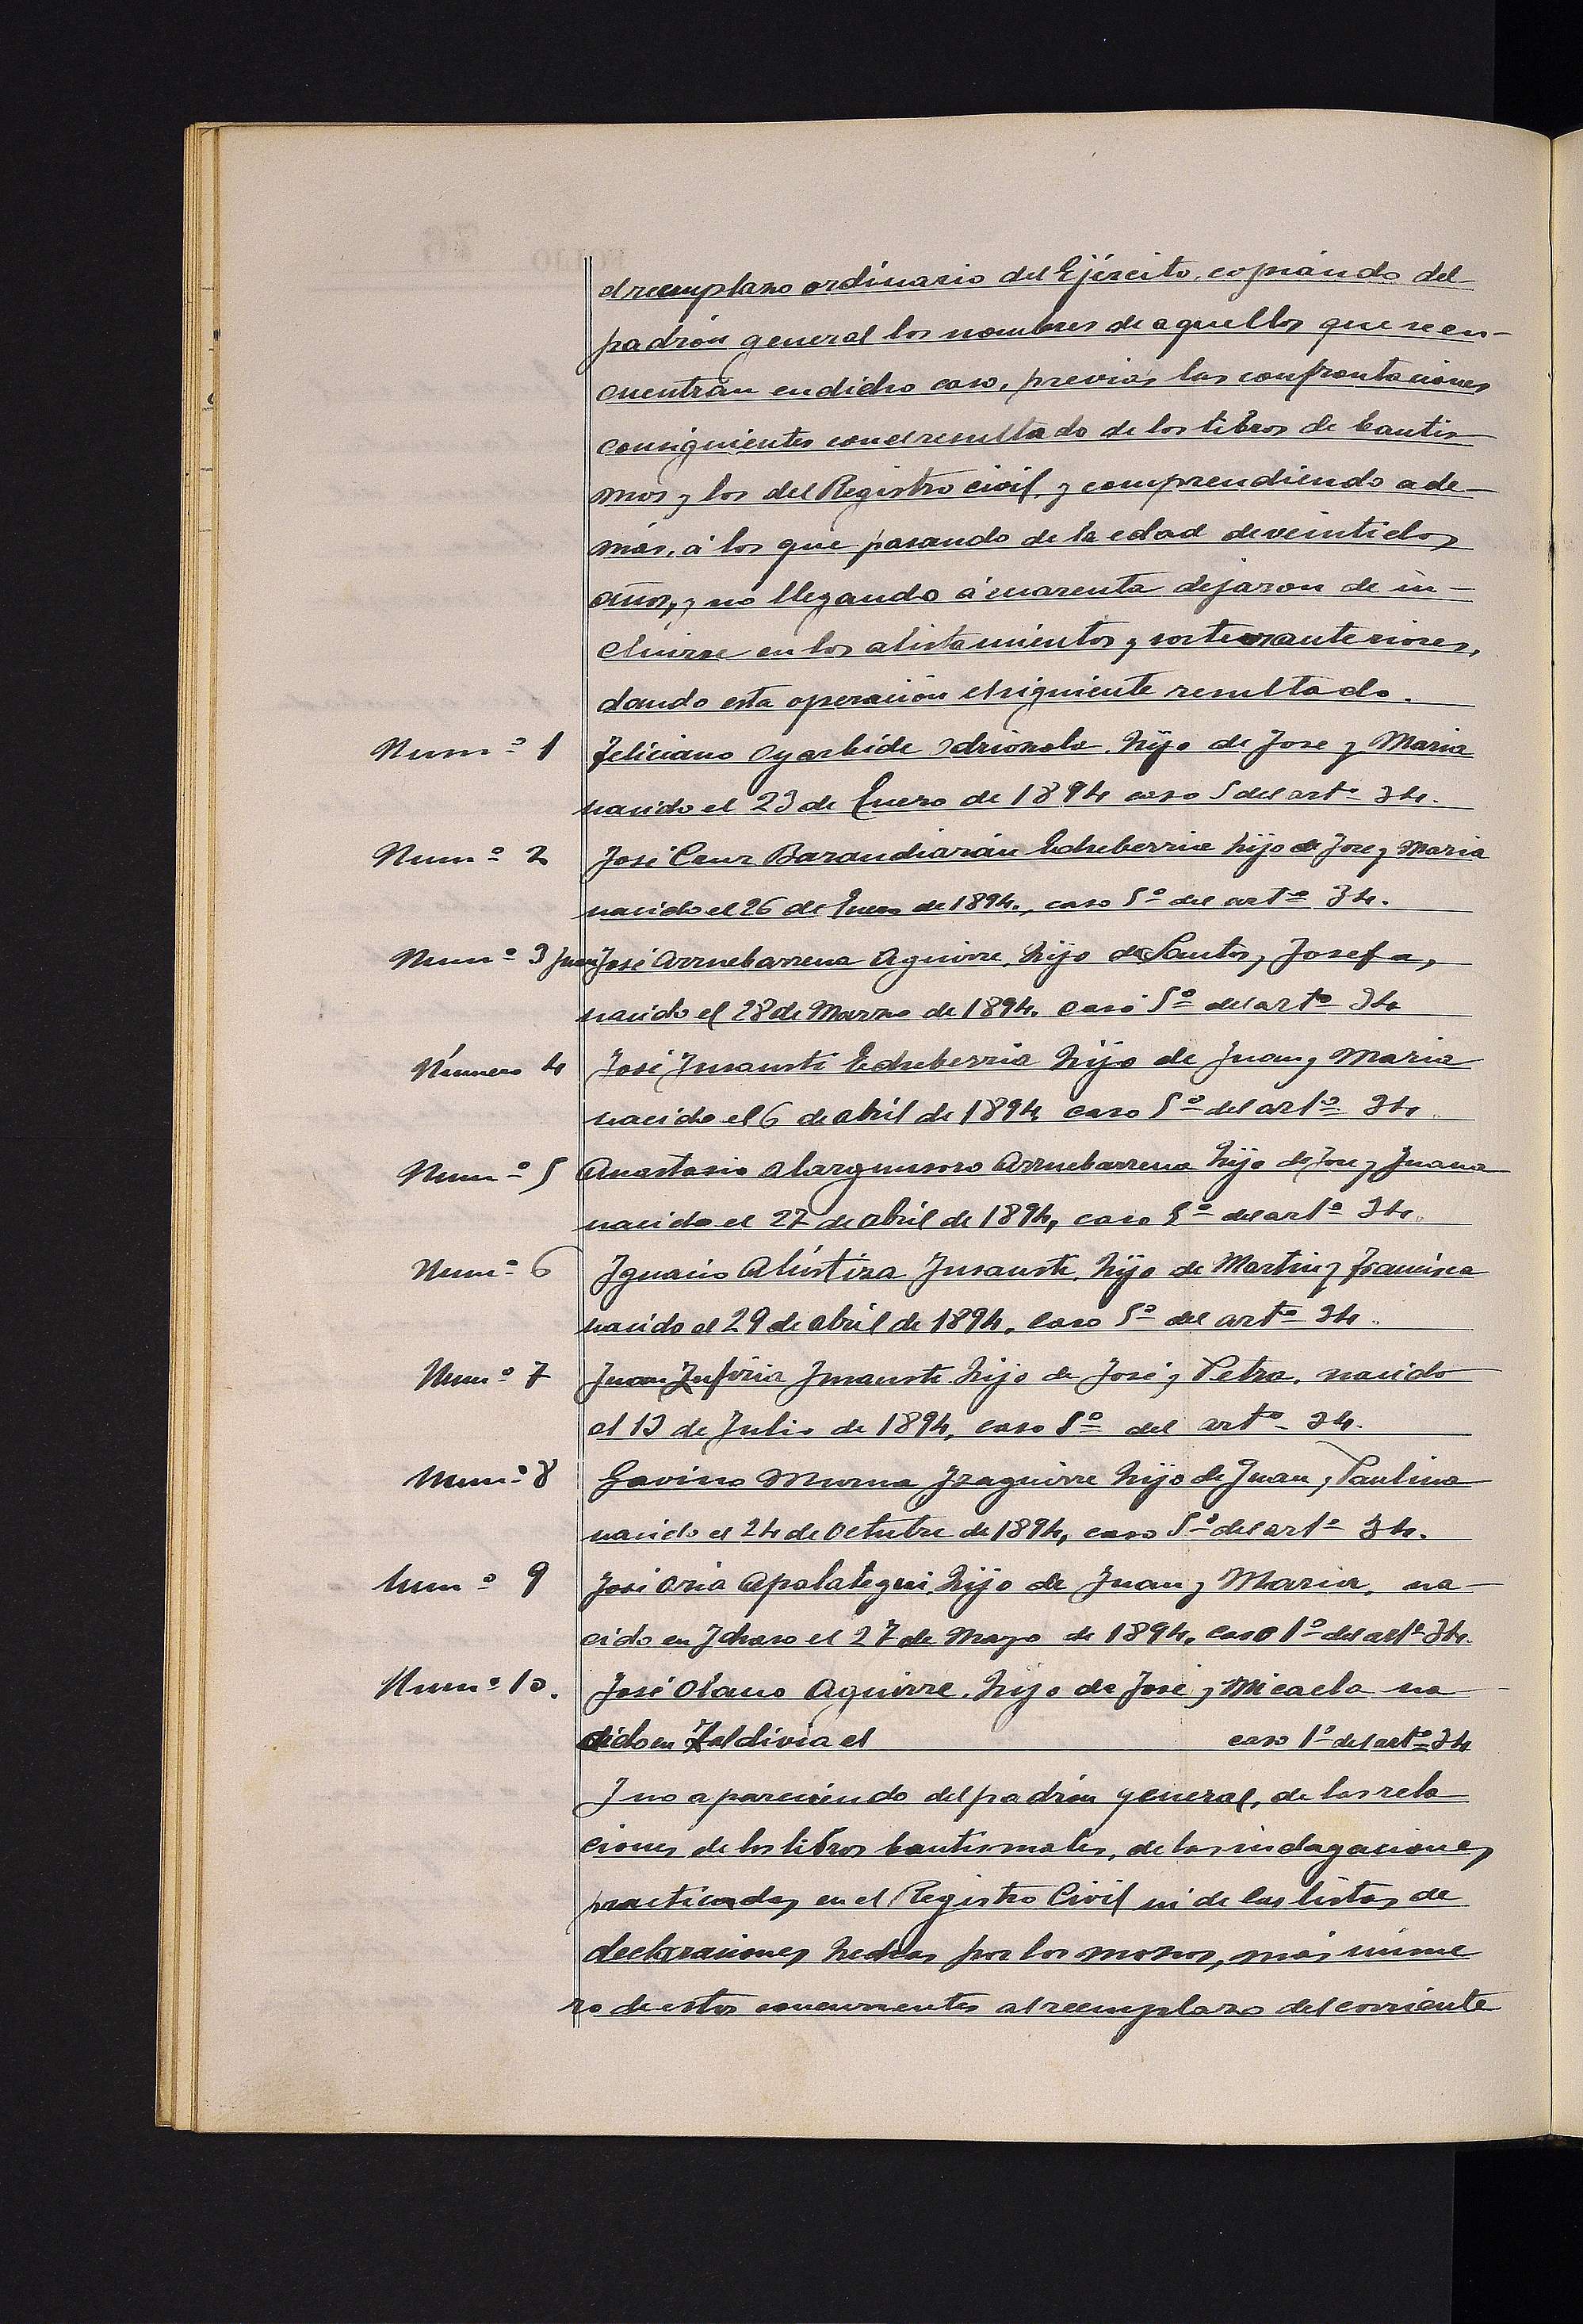 el reemplazo ordinario del Ejército, copiando del
padrón general los nombres de aquellos que se en-
cuentran en dicho caso, previas las confrontaciones
consiguientes con el resultado de los libros de bautis
mos y los del Registro civil, y comprendiendo ade-
más, á los que pasando de la edad de veintidos
años, y no llegando á cuarenta dejaron de in-
cluirse en los alistamientos y sorteos anteriores,
dando esta operación el siguiente resultado.
Numº 1 Feliciano Oyarbide Odriozola, hijo de Jose y Maria
nacido el 23 de Enero de 1894 caso 5 del artº 34.
Numº 2 José Cruz Barandiarán Echeberria hijo de Jose y Maria
nacido el 26 de Enero de 1894., caso 5º del artº 34.
Numº 3 Juan José Arruebarrena Aguirre, hijo de Santos y Josefa,
nacido el 28 de Marzo de 1894. caso 5º del artº 34
Número 4 José Insausti Echeberria hijo de Juan y Maria
nacido el 6 de abril de 1894, caso 5º del artº 34.
Numº 5 Anastasio Albargunsoro Arruebarrena hijo de Jose y Juana
nacido el 27 de abril de 1894, caso 5º del artº 34.
Numº 6 Ignacio Alústiza Insausti, hijo de Martin y Francisca
nacido el 29 de abril de 1894, caso 5º del artº 34.
Numº 7 Juan Insausti hijo de José y Petra, nacido
el 13 de Julio de 1894, caso 5º del artº 34.
Numº 8 Gavino Murua Izaguirre hijo de Juan y Paulina
nacido el 24 de Octubre de 1894, caso 5º del artº 34.
Numº 9 José Oria Apalategui, hijo de Juan y Maria, na-
cido en Ichaso el 27 de Mayo de 1894, caso 1º del artº 34.
Numº 10. José Olano Aguirre, hijo de José y Micaela na
cido en Zaldivia el caso 1º del artº 34
Y no apareciendo del padrón general, de las rela
ciones de los libros bautismales, de las indagaciones
practicadas en el Registro Civil ni de las listas de
declaraciones hechas por los mozos, más núme
ro de estos concurrentes al reemplazo del corriente